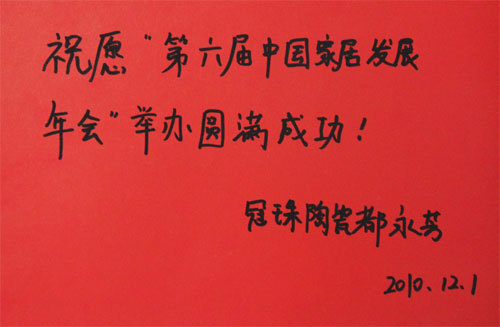 祝愿“第六届中国家居发展
年会”举办圆满成功!
冠珠陶瓷都永芳
2010.12.1